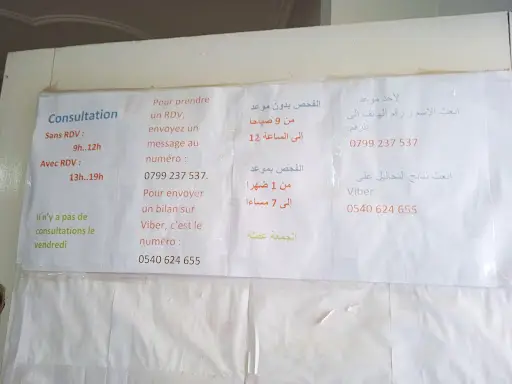 Consultation
Sans RDV :
9h..12h
Avec RDV :
13h..19h
Il n'y a pas de
consultations le
vendredi
Pour prendre
un RDV,
envoyez un
message au
numéro :
0799 237 537.
Pour envoyer
un bilan sur
Viber, c'est le
numéro :
0540 624 655
الفحص بدون موعد
من 9 صباحا
إلى الساعة 12
الفحص بموعد
من 1 ظهرا
إلى 7 مساءا
الجمعة عطلة
لأخذ موعد
ابعث الاسم و رقم الهاتف إلى
0799 237 537
ابعث نتائج التحاليل على
Viber
0540 624 655